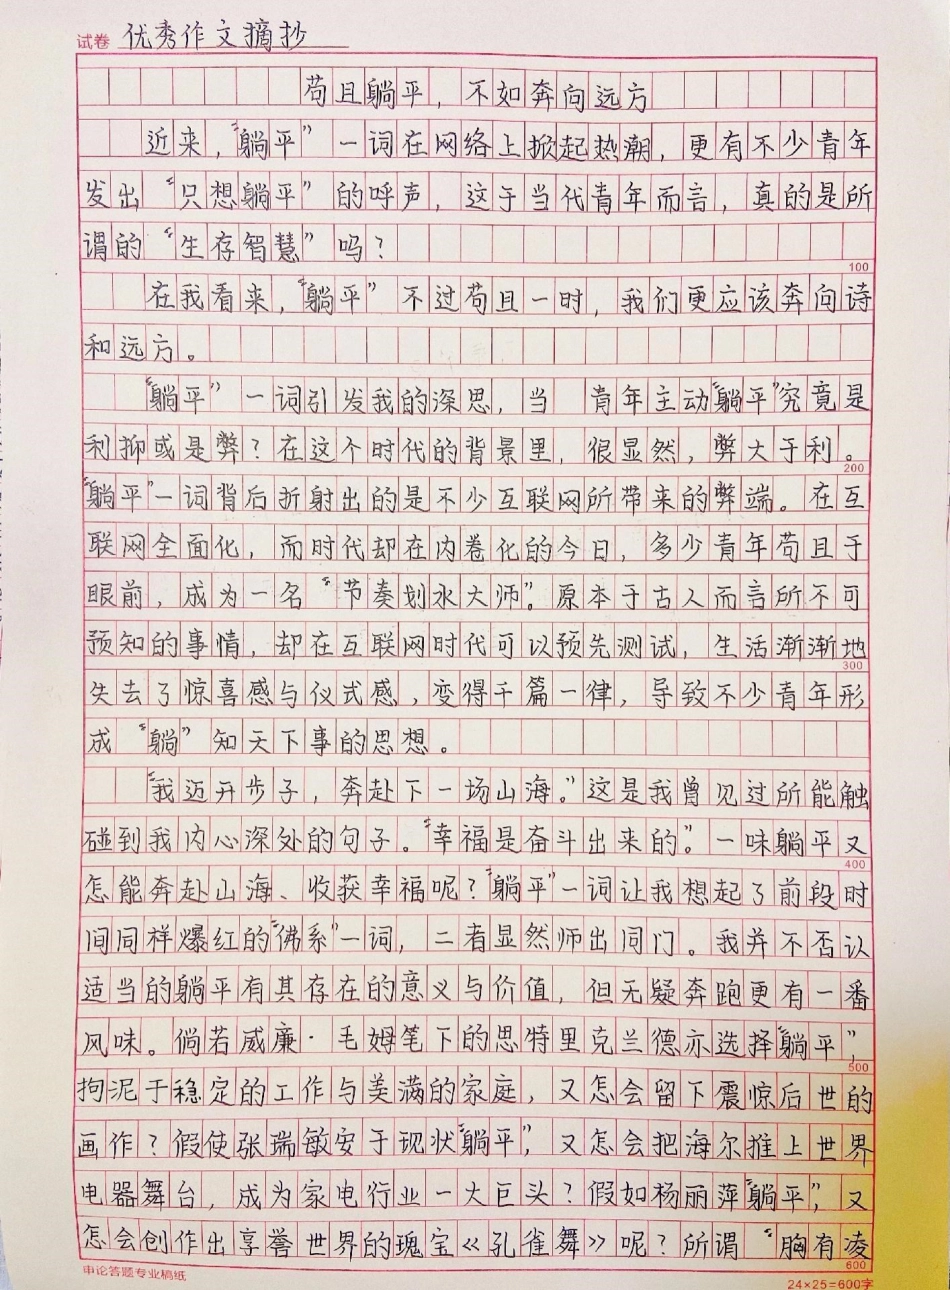 试卷 优秀作文摘抄
苟且躺平，不如奔向远方
近来，“躺平”一词在网络上掀起热潮，更有不少青年
发出“只想躺平”的呼声，这于当代青年而言，真的是所
谓的“生存智慧”吗？
100
在我看来，“躺平”不过苟且一时，我们更应该奔向诗
和远方。
“躺平”一词引发我的深思，当 青年主动“躺平”究竟是
利抑或是弊？在这个时代的背景里，很显然，弊大于利。
200
“躺平”一词背后折射出的是不少互联网所带来的弊端。在互
联网全面化，而时代却在内卷化的今日，多少青年苟且于
眼前，成为一名“节奏划水大师”。原本于古人而言所不可
预知的事情，却在互联网时代可以预先测试，生活渐渐地
300
失去了惊喜感与仪式感，变得千篇一律，导致不少青年形
成“躺”知天下事的思想。
“我迈开步子，奔赴下一场山海。”这是我曾见过所能触
碰到我内心深处的句子。“幸福是奋斗出来的”。一味躺平又
400
怎能奔赴山海、收获幸福呢？“躺平”一词让我想起了前段时
间同样爆红的“佛系”一词，二者显然师出同门。我并不否认
适当的躺平有其存在的意义与价值，但无疑奔跑更有一番
风味。倘若威廉·毛姆笔下的思特里克兰德亦选择“躺平”，
500
拘泥于稳定的工作与美满的家庭，又怎会留下震惊后世的
画作？假使张瑞敏安于现状“躺平”，又怎会把海尔推上世界
电器舞台，成为家电行业一大巨头？假如杨丽萍“躺平”，又
怎会创作出享誉世界的瑰宝《孔雀舞》呢？所谓“胸有凌
600
申论答题专业稿纸
24×25=600字